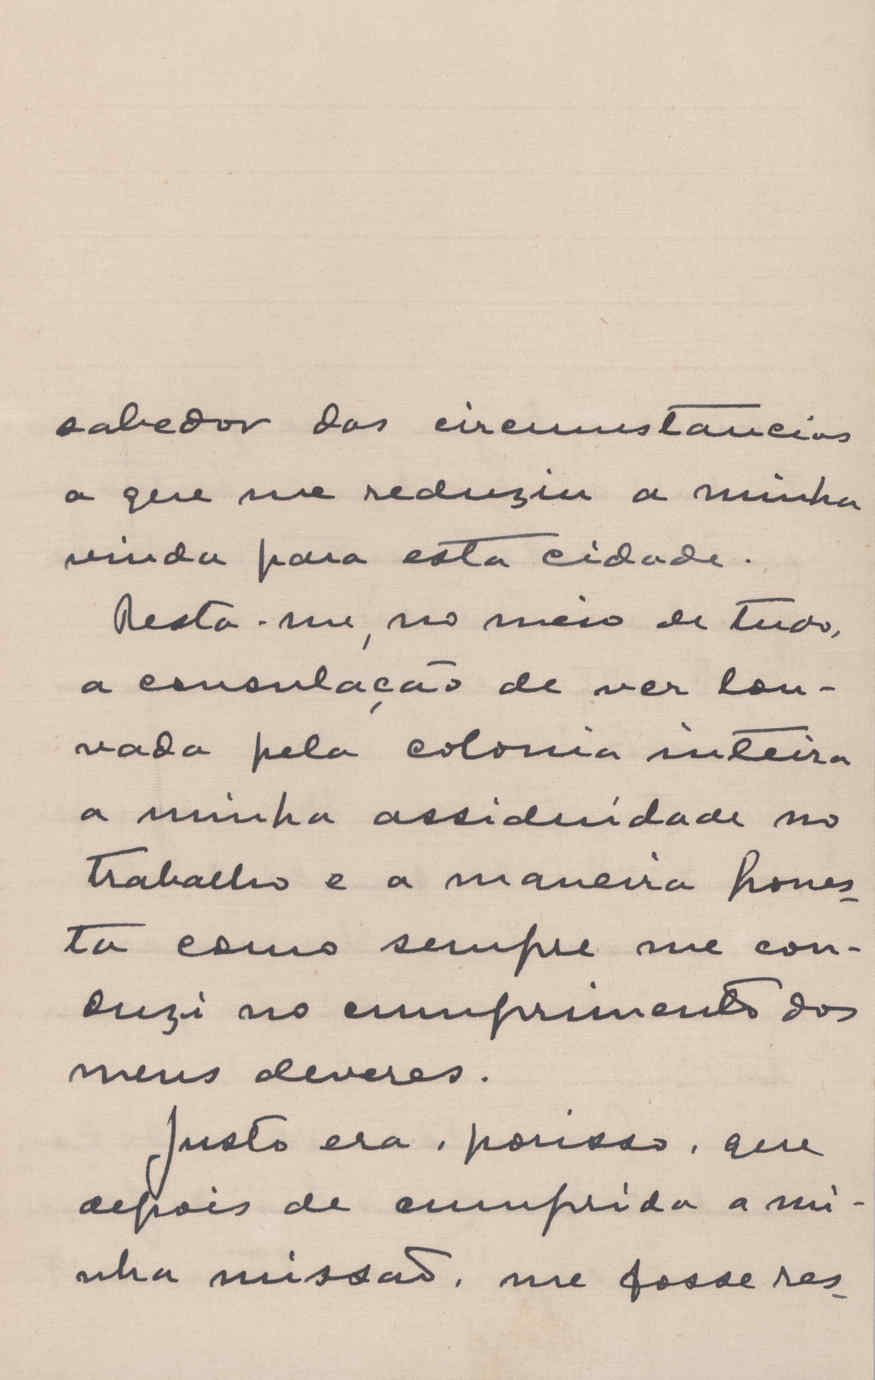 sabedor das circumstancias
a que me reduziu a minha
vinda para esta cidade.
Resta-me, no meio de tudo,
a consolação de ver lou-
vada pela colonia inteira
a minha assiduidade no
trabalho e a maneira hones-
ta como sempre me con-
duzi no cumprimento dos
meus deveres.
Justo era, porisso, que
depois de cumprida a mi-
nha missão, me fosse res-